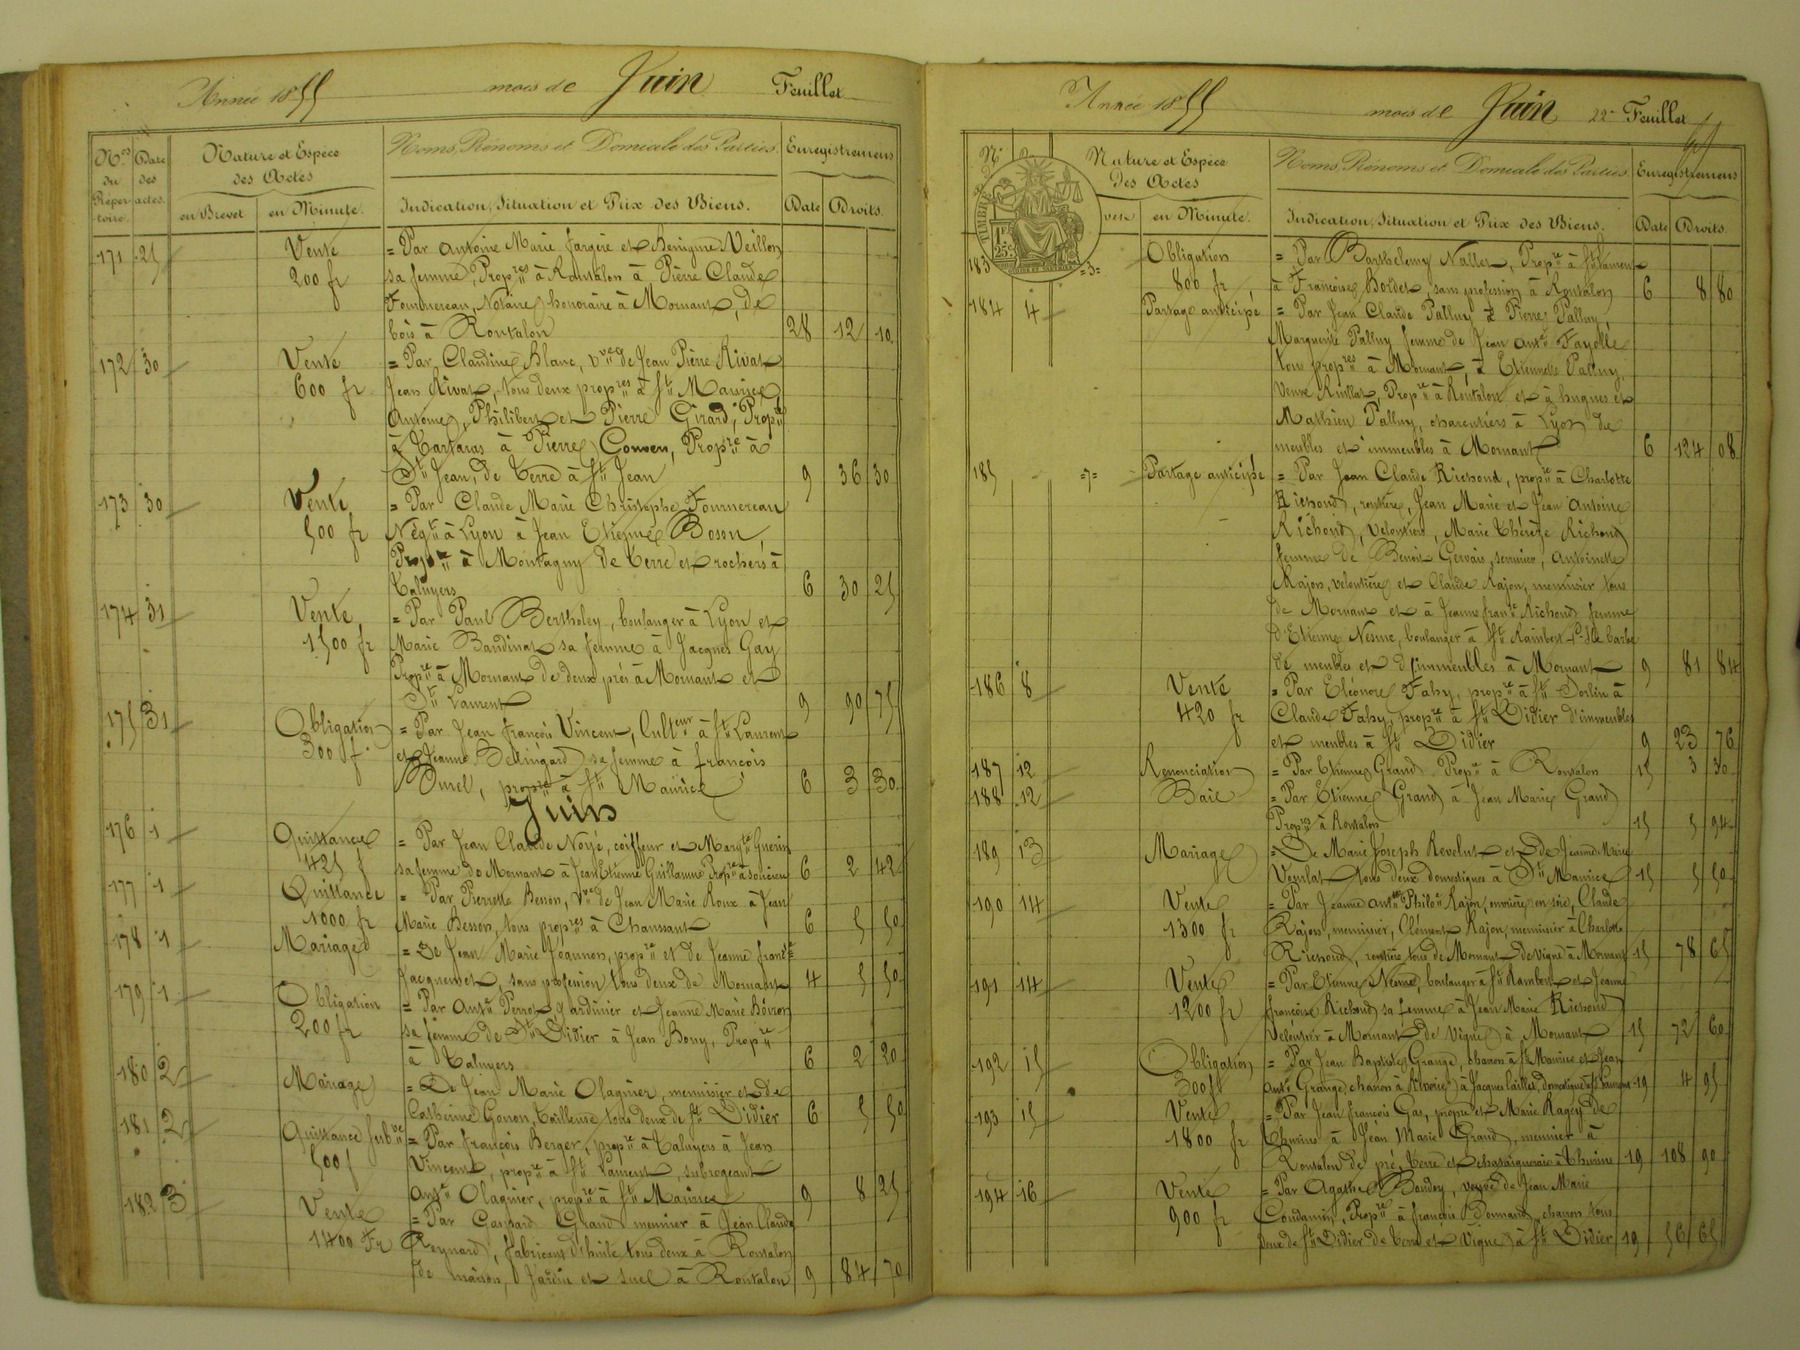 Année 1855 mois de Juin Feuillet
Nos du Réper-toire. Date des actes. Nature et Espèce des Actes Noms, Prénoms et Domicile des Parties. Enregistrement
en Brevet en Minute. Indication, Situation et Prix des Biens. Date Droits.
171 25 Vente = Par Antoine Marie Fargère et Benigne Veillon
200 fr sa femme, Propres à Rontalon à Pierre Claude
Fournereau, Notaire honoraire à Mornant, de
bois à Rontalon 28 12 10
172 30 Vente = Par Claudine Blanc, vve de Jean Pierre Rivat
600 fr Jean Rivat, tous deux propres à St Maurice
Antoine, Philibert et Pierre Girard, Propres
à Tartaras à Pierre Propre à
St Jean, de Terre à St Jean 9 36 30
173 30 Vente = Par Claude Marie Christophe Fournereau
500 fr Négt à Lyon à Jean Etienne Boson,
Propre à Montagny de terre et rochers à
Taluyers 6 30 25
174 31 Vente = Par Paul Bertholey, boulanger à Lyon et
1500 fr Marie Baudinat sa femme à Jacques Gay
Propre à Mornant de deux prés à Mornant et
St Laurent 9 90 75
175 31 Obligation = Par Jean François Vincent, Culteur à St Laurent
300 f. et Jeanne Bellingard sa femme à François
propre à St Maurice 6 3 30
Juin
176 1 Quittance = Par Jean Claude Noyé, coiffeur et Margte Guérin
425 f sa femme de Mornant à Jean Etienne Guillaume Propre à Soucieu 6 2 42
177 1 Quittance = Par Pierrette Besson, Vve de Jean Marie Roux à Jean
1000 fr Marie Besson, tous propres à Chaussant 6 5 50
178 1 Mariage = De Jean Marie propre et de Jeanne Franse
Jacquemet, sans profession tous deux de Mornant 4 5 50
179 1 Obligation = Par Ante Perrot, Jardinier et Jeanne Marie Boiron
200 fr sa femme de St Didier à Jean Bony, Propre
à Taluyers 6 2 20
180 2 Mariage = De Jean Marie Olagnier, menuisier et de
Catherine Gonon, Tailleuse tous deux de St Didier 6 5 50
181 2 Quittance subve = Par François Berger, propre à Taluyers à Jean
500 f Vincent, propre à St Laurent, subrogeant
Ante Olagnier, propre à St Maurice 9 8 25
182 3 Vente = Par Gaspard Grand menuier à Jean Claude
1400 Fr Reynard, fabricant d'huile tous deux à Rontalon
de maison, Jardin et suel à Rontalon 9 84 70
Année 1855 mois de Juin 22e Feuillet
No Nature et Espèce des Actes Noms, Prénoms et Domicile des Parties. Enregistrement
en Minute. Indication, Situation et Prix des Biens. Date Droits.
TIMBRE 1f 25c
183 =3= Obligation = Par Barthelemy Nallet, Propre à St Laurent
800 fr à Françoise Boldet, sans profession à Rontalon 6 8 80
184 4 Partage anticipé = Par Jean Claude Palluy à Pierre Palluy,
Marguerite Palluy femme de Jean Ante Fayolle
tous propres à Mornant, à Etiennette Palluy,
Veuve Ruillat, Propre à Rontalon et à hugues et
Mathieu Palluy, charcutiers à Lyon de
meubles et immeubles à Mornant 6 124 08
185 =7= Partage anticipé = Par Jean Claude Richond, propre à Charlotte
Richond, rentière, Jean Marie et Jean Antoine
Richond, veloutiers, Marie Thérèze Richond
femme de Benoit Gervais, Antoinette
Rajon, veloutière et Claude Rajon, menuisier tous
de Mornant et à Jeanne Franse Richond femme
d'Etienne Nesme, boulanger à St Rambert Barbe
de meubles et d'immeubles à Mornant 9 81 84
186 8 Vente = Par Eléonore Fahy, propre à St Sorlin à
420 fr Claude Fahy, propre à St Didier d'immeubles
et meubles à St Didier 9 23 76
187 12 Renonciation = Par Etienne Grand Propre à Rontalon 15 3 30
188 12 Bail = Par Etienne Grand à Jean Marie Grand
Propres à Rontalon 15 5 94
189 13 Mariage = De Marie Joseph Revelut et de Jeanne Marie
tous deux domestiques à St Maurice 15 5 50
190 14 Vente = Par Jeanne Antte Philote Rajon, ouvrière en soie, Claude
1300 fr Rajon, menuisier, Clément Rajon, menuisier à Charlotte
Richond, rentière tous de Mornant de vigne à Mornant 15 78 65
191 14 Vente = Par Etienne Nesme, boulanger à St Rambert et Jeanne
1200 fr Françoise Richond sa femme à Jean Marie Richond
veloutier à Mornant de vigne à Mornant 15 72 60
192 15 Obligation = Par Jean Baptiste Grange, charon à St Maurice et Jean
300 fr Ante Grange charon à à Jacques domestique à St Laurent 19 4 95
193 15 Vente = Par Jean François Gas, propre et Marie Ragey de
1800 fr Thurins à Jean Marie Grand, meunier à
Rontalon de pré, terre et chataigneraie à Thurins 19 108 90
194 16 Vente = Par Agathe Boudoy, veuve de Jean Marie
900 fr Condamin, Propre à François charon tous
deux de St Didier de terre et vigne à St Didier 19 56 65